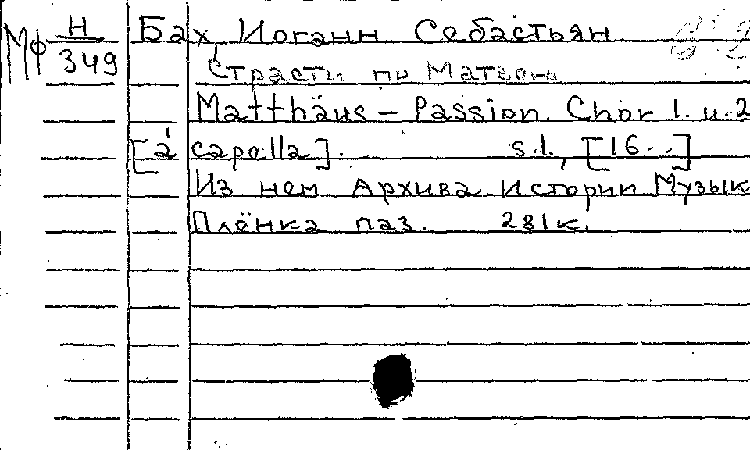 МФ Н/349 Бах Иоганн Себастьян
Страсти по Матвею
Matthäus – Passion. Chor 1. u. 2
[à capella]. s.l., [16..]
Из нем Архива Истории Музык
Плёнка паз. 281к.